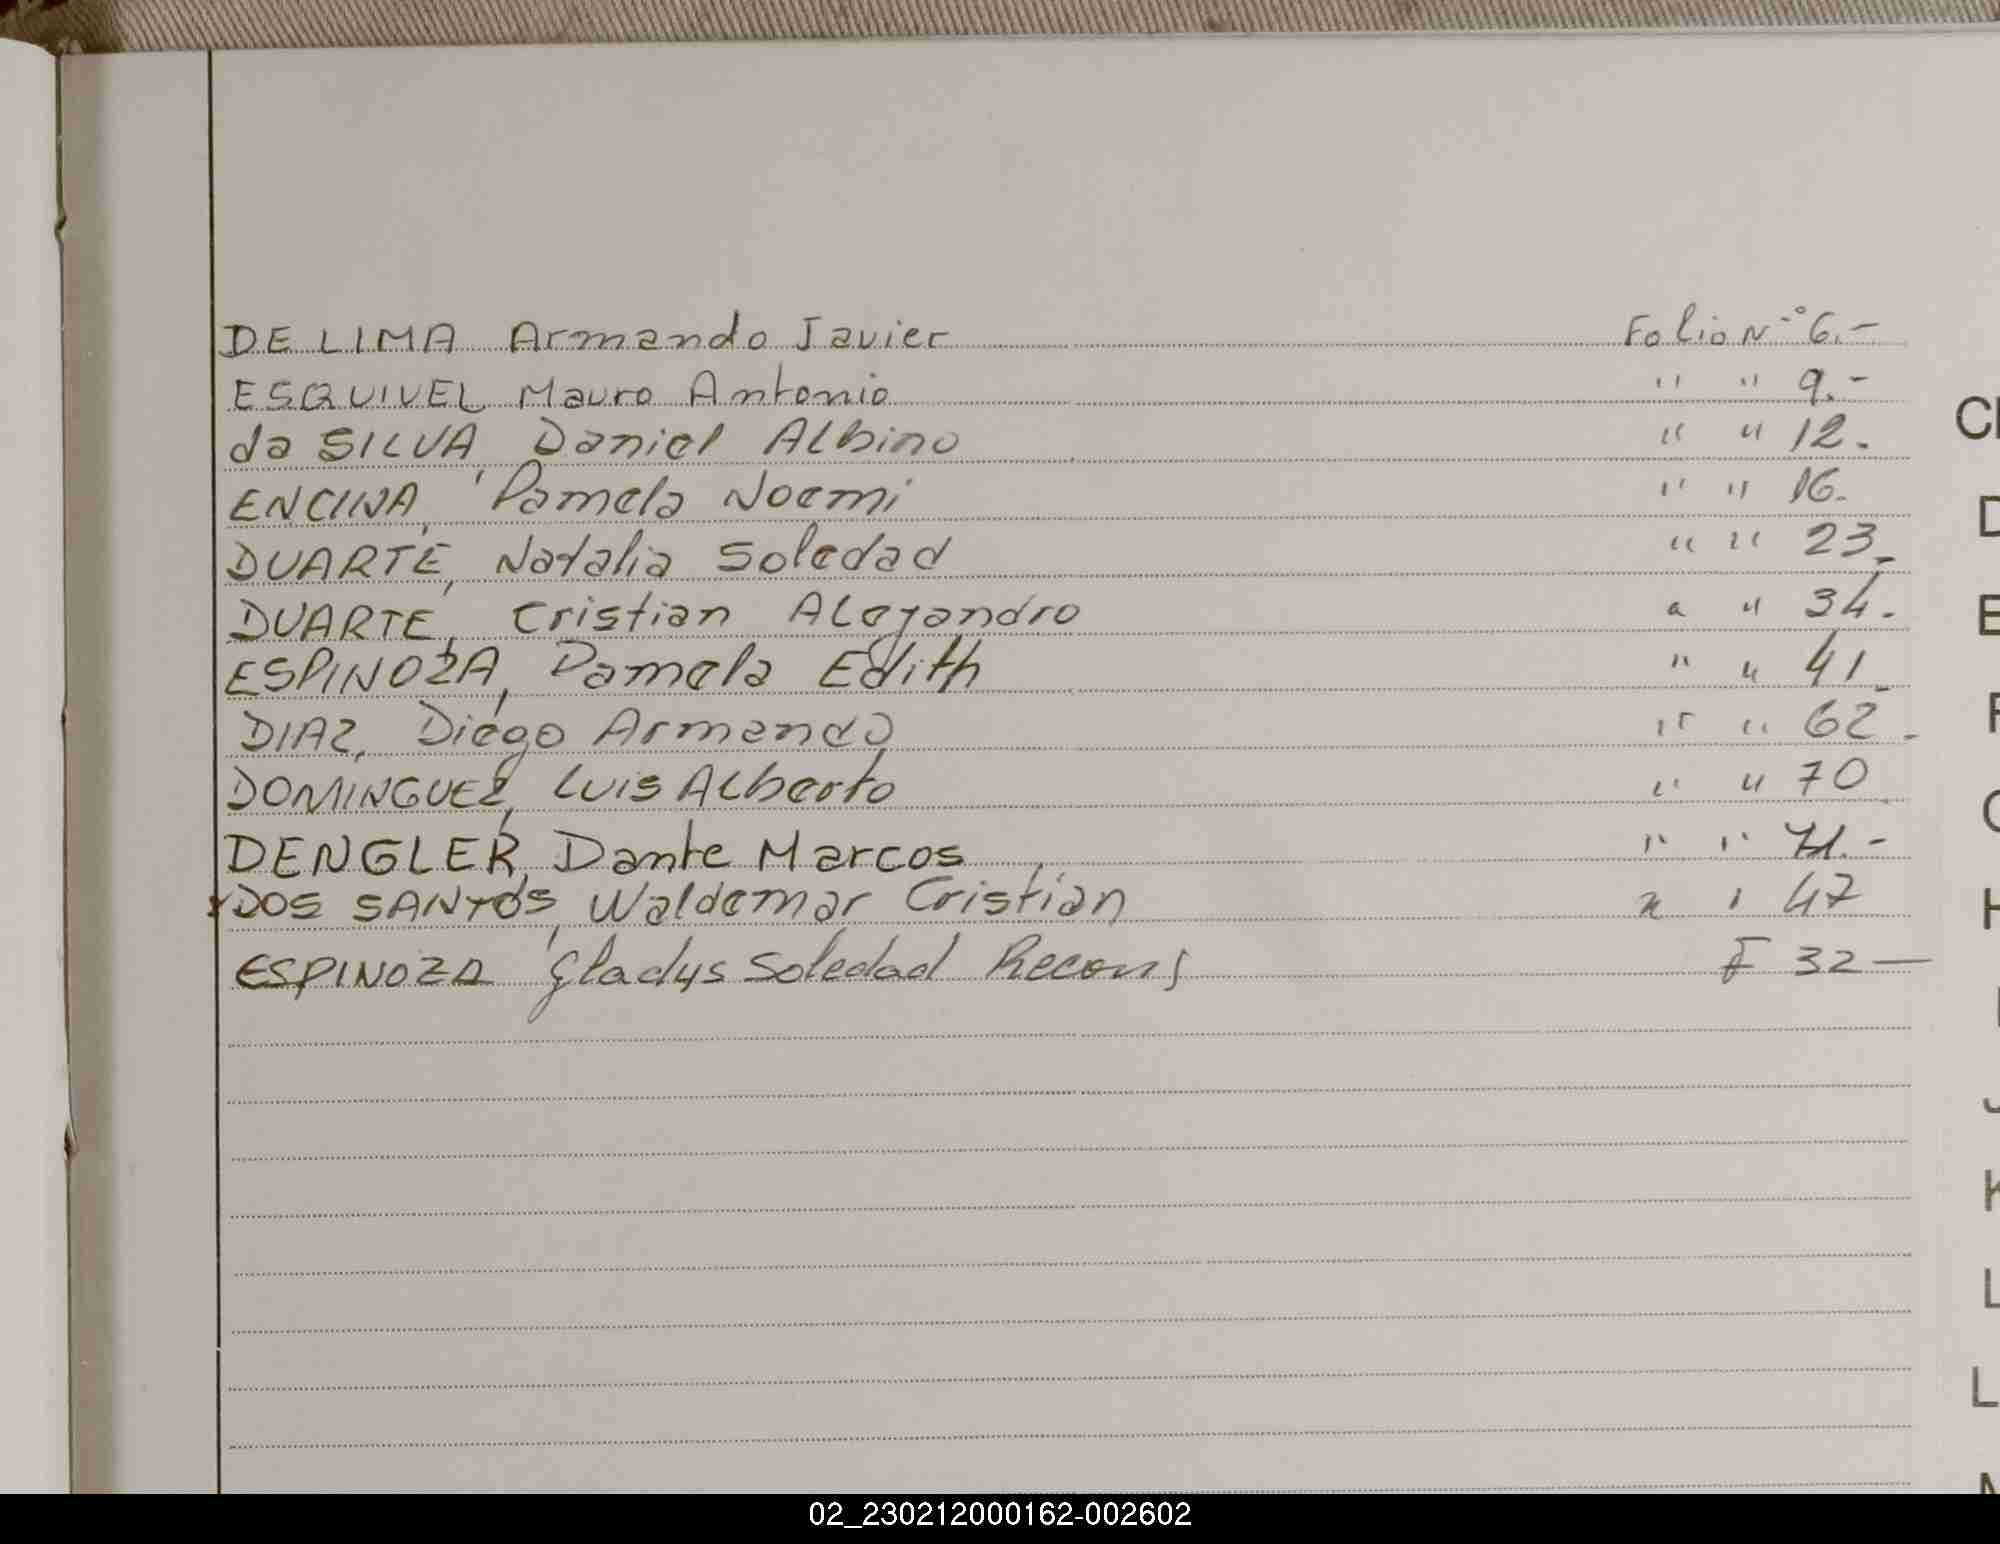 DE LIMA Armando Javier Folio Nº 6.-
ESQUIVEL Mauro Antonio " " 9.-
da SILVA, Daniel Albino " " 12.
ENCINA, Pamela Noemi " " 16.
DUARTE, Natalia Soledad " " 23.
DUARTE, Cristian Alejandro " " 34.
ESPINOZA, Pamela Edith " " 41
DIAZ, Diego Armando " " 62.
DOMINGUEZ, Luis Alberto " " 70
DENGLER, Dante Marcos " " 71.-
DOS SANTOS, Waldemar Cristian " " 47
ESPINOZA Gladys Soledad F 32—
D
E
F
H
J
K
L
L
02_230212000162-002602